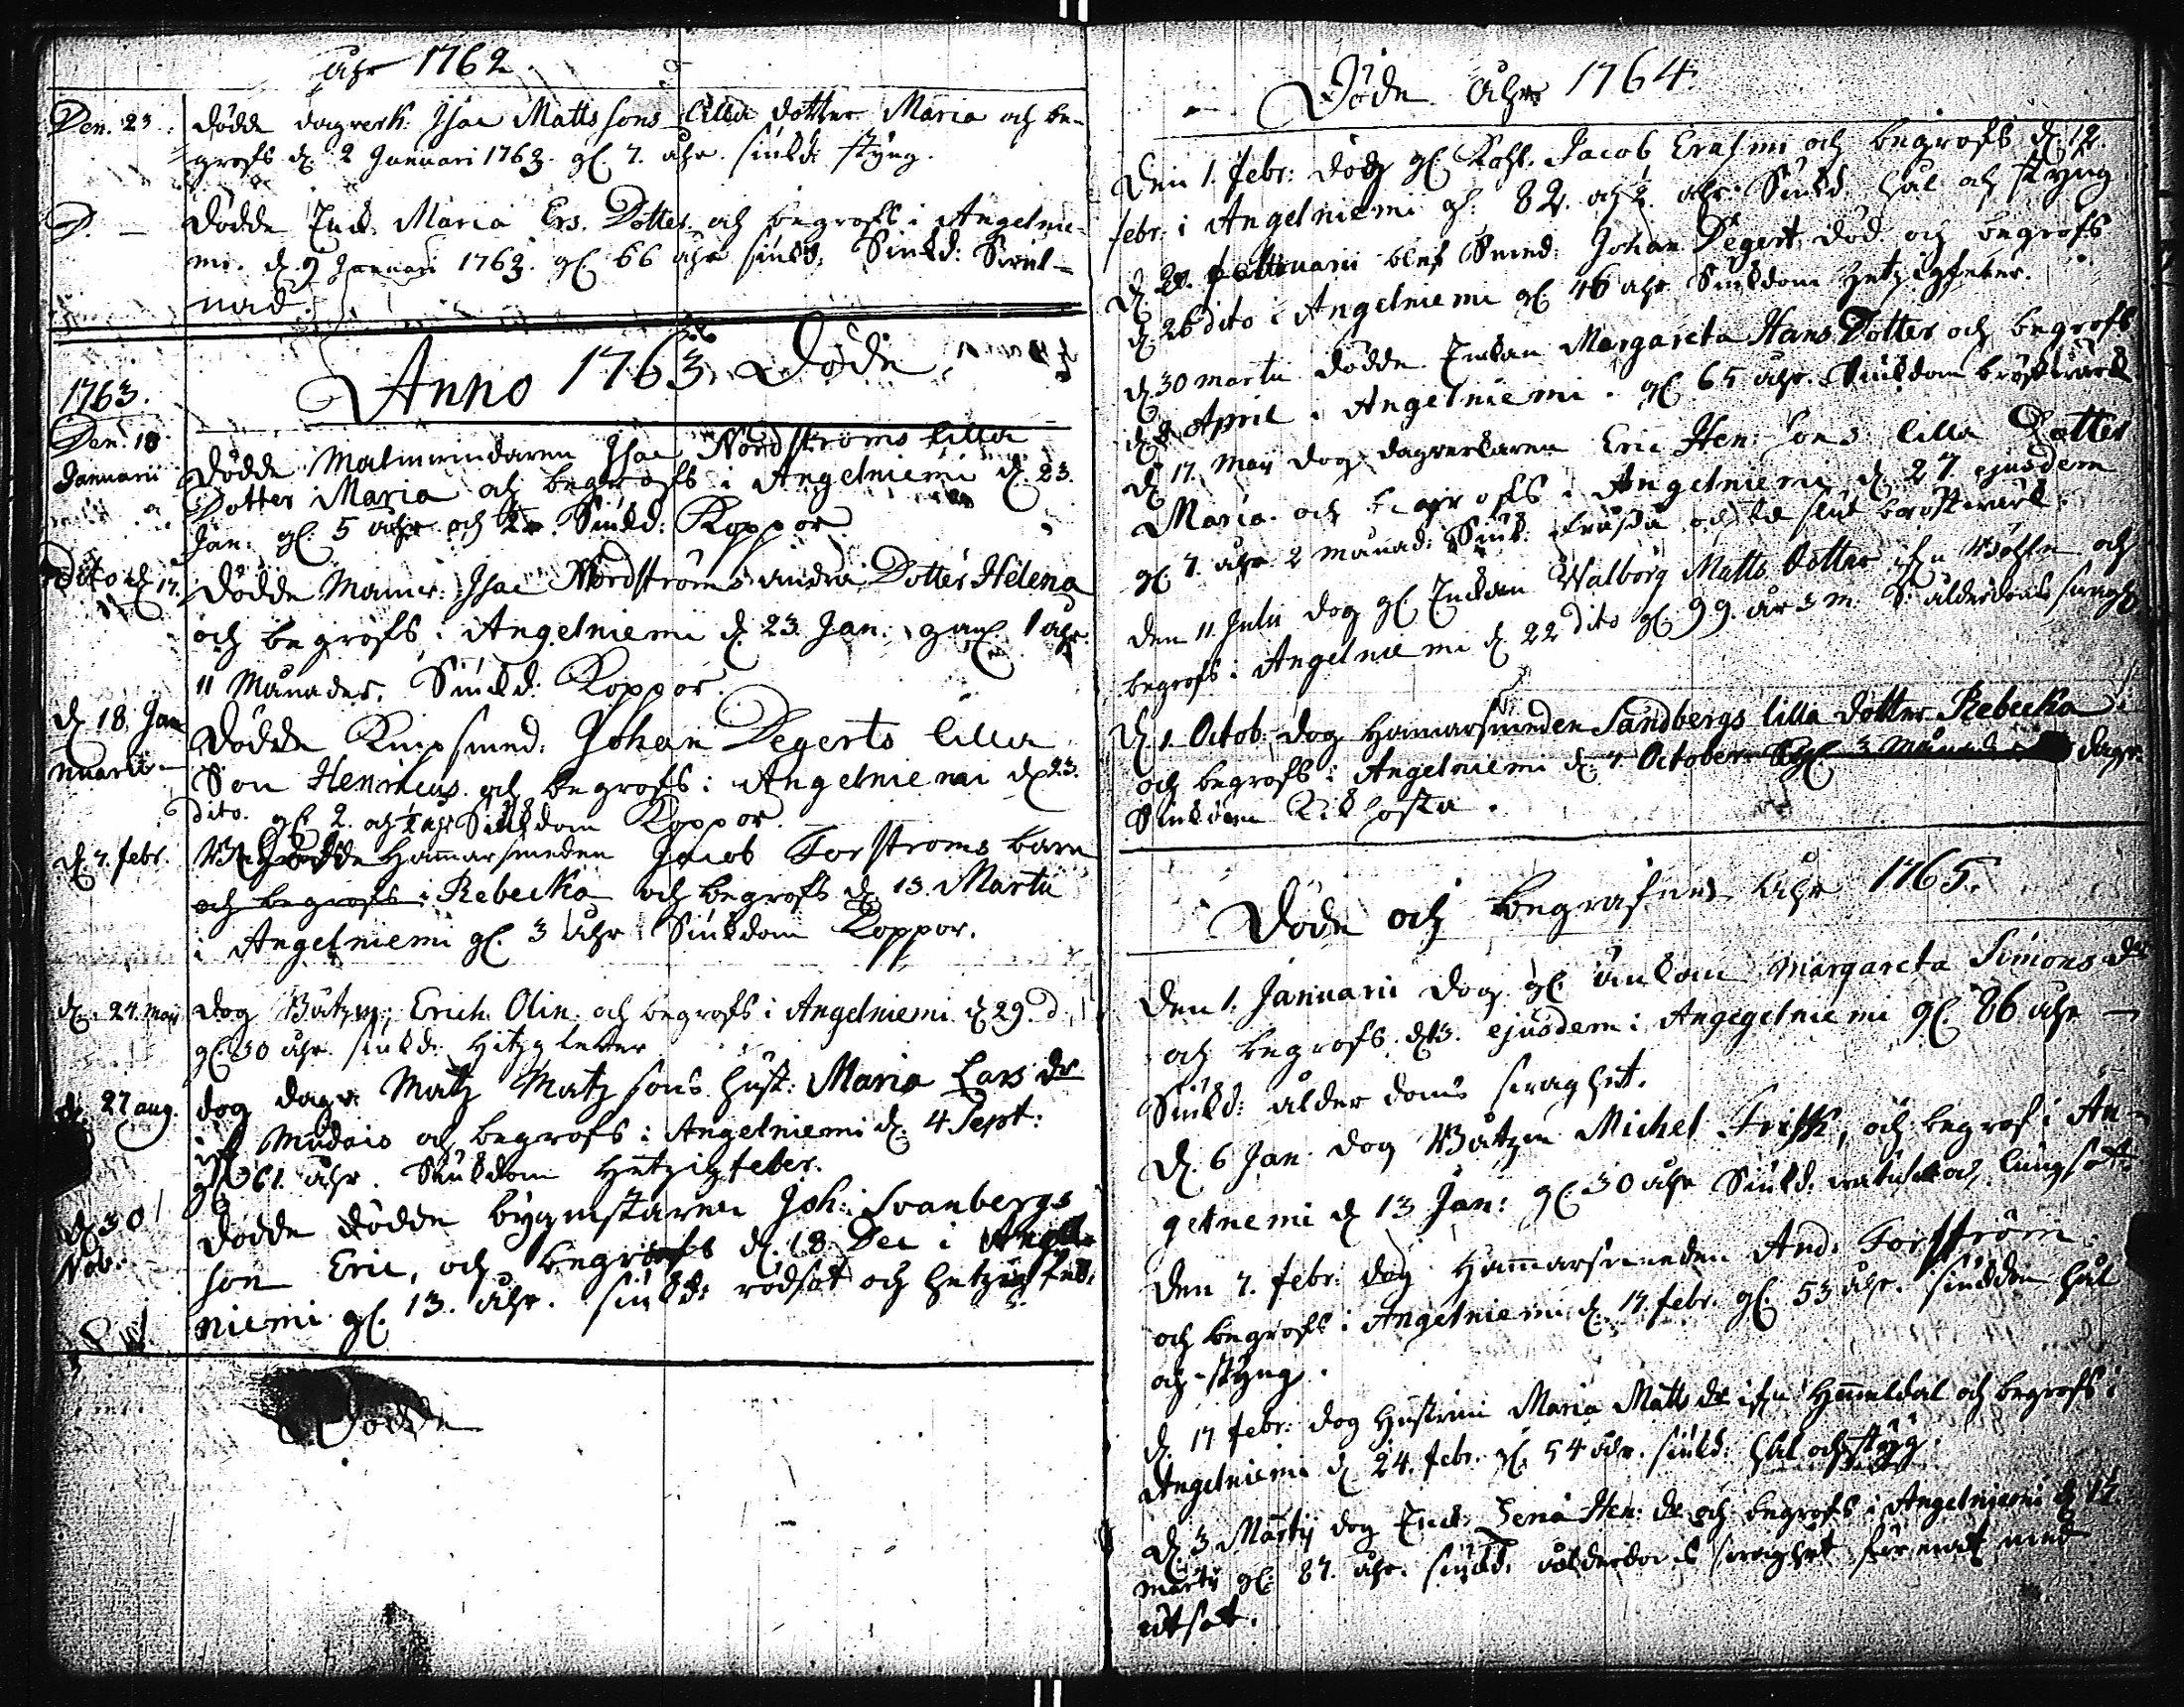 åhr 1762.
Den. 23. dödde dagverk: Isac Matts sons lilla dotter Maria och be-
grofs d. 2 Januari 1763. gl. 7. åhr. siukd: styng.
D. — dödde Enck. Maria Ers. Dotter. och begrofs i Angelnie-
mi. d. 9 Januari 1763. gl 66 åhr siukd:
nad.
Anno 1763 Döde
1763.
Den. 18 Januarii
dödde Isac Nordströms lilla
Dotter Maria och begrofs i Angelniemi d. 23.
Jan: gl: 5 åhr och Siukd: Koppor
Dito d. 17. dödde Isac Nordströms andra Dotter Helena
och begrofs i Angelniemi d. 23. Jan. 1 åhr
11 Månader. Siukd: Koppor.
d. 18. Jan
nuarii — Dödde Knipsmed: Johan Degerts lilla
Son Henricus och begrofs i Angelniemi d. 23.
dito. gl. 2. och ½ åhr Siukdom Koppor.
d. 7. febr. Hammarsmeden Jacob Forstroms barn
och begrofs i Rebecka och begrofs d. 13. Martii
i Angelniemi gl. 3 åhr Siukdom Koppor.
d. 24. maij dog Båtzm: Erich Olin. och begrofs i Angelniemi d 29. d.
gl. 30 åhr. siukd:
d. 27 aug. dog dagv. Matz Matz sons hust: Maria Lars dr
och begrofs i Angelniemi d. 4 Sept:
61. åhr. Siukdom Hetzigfeber.
d. 30
Nob: dödde dödde bygmästaren Joh: Svanbergs
son Eric, och begrofs d. 18 Dec i Angel-
niemi gl. 13. åhr. siukd: rödsot och hetzig feb:
Dödde
Döde Åhr 1764.
Den 1. febr: dog gl. Jacob Erasmi och begrofs d. 12.
febr: i Angelniemi gl: 82. och ½ åhr. Siukd: hål och styng
blef Smed: Johan Degert död och begrofs
d. 26 dito i Angelniemi gl 46 åhr Siukdom hetzigfeber.
d. 30 martii dödde Enckan Margareta Hans Dotter och begrofs
April i Angelniemi. gl. 65 åhr. Siukdom bröstvärk
d. 17. Maij dog dagverkaren Eric Hen: sons lilla Dotter
Maria. och begrofs i Angelniemi d. 27 ejusdem
gl 7. åhr 2 månad: Siukd: bröstvärk.
Den 11. Julii dog gl. Enckan Walborg Matts dotter och
begrofs i Angelniemi d. 22 dito gl. 99. år 3 m. S. ålderdoms
d. 1. Octob: dog Hamarsmeden Sandbergs lilla dotter Rebecka
och begrofs i Angelniemi d. 7 October gl. 3 Månad dagr.
Siukdom Kikhosta.
Döde och begrafne Åhr 1765.
Den 1. Januarii dog gl. änkan Margareta Simons dr
och begrofs d. 13. ejusdem i Angegelniemi gl. 86 åhr —
Siukd: ålderdoms svaghet.
d. 6 Jan. dog Båtzm Michel Frisk, och begrof i An-
gelnemi d 13 Jan: gl. 30 åhr Siukd: lungsot.
Den 7. febr: dog Hammarsmeden And: Forström
och begrofs i Angelniemi d. 17. febr. gl. 53 åhr. siukdom hål
och styng.
d. 17 febr: dog hustrun Maria Matts dr Hemeldal och begrofs i
Angelniemi d 24. febr. gl. 54 åhr. siukd: hål och styg.
d. 3 Martij dog Enck. Hen: dr och begrofs i Angelniemi d 17.
martij gl. 87. åhr. siukd. ålderdoms svaghet förenat med